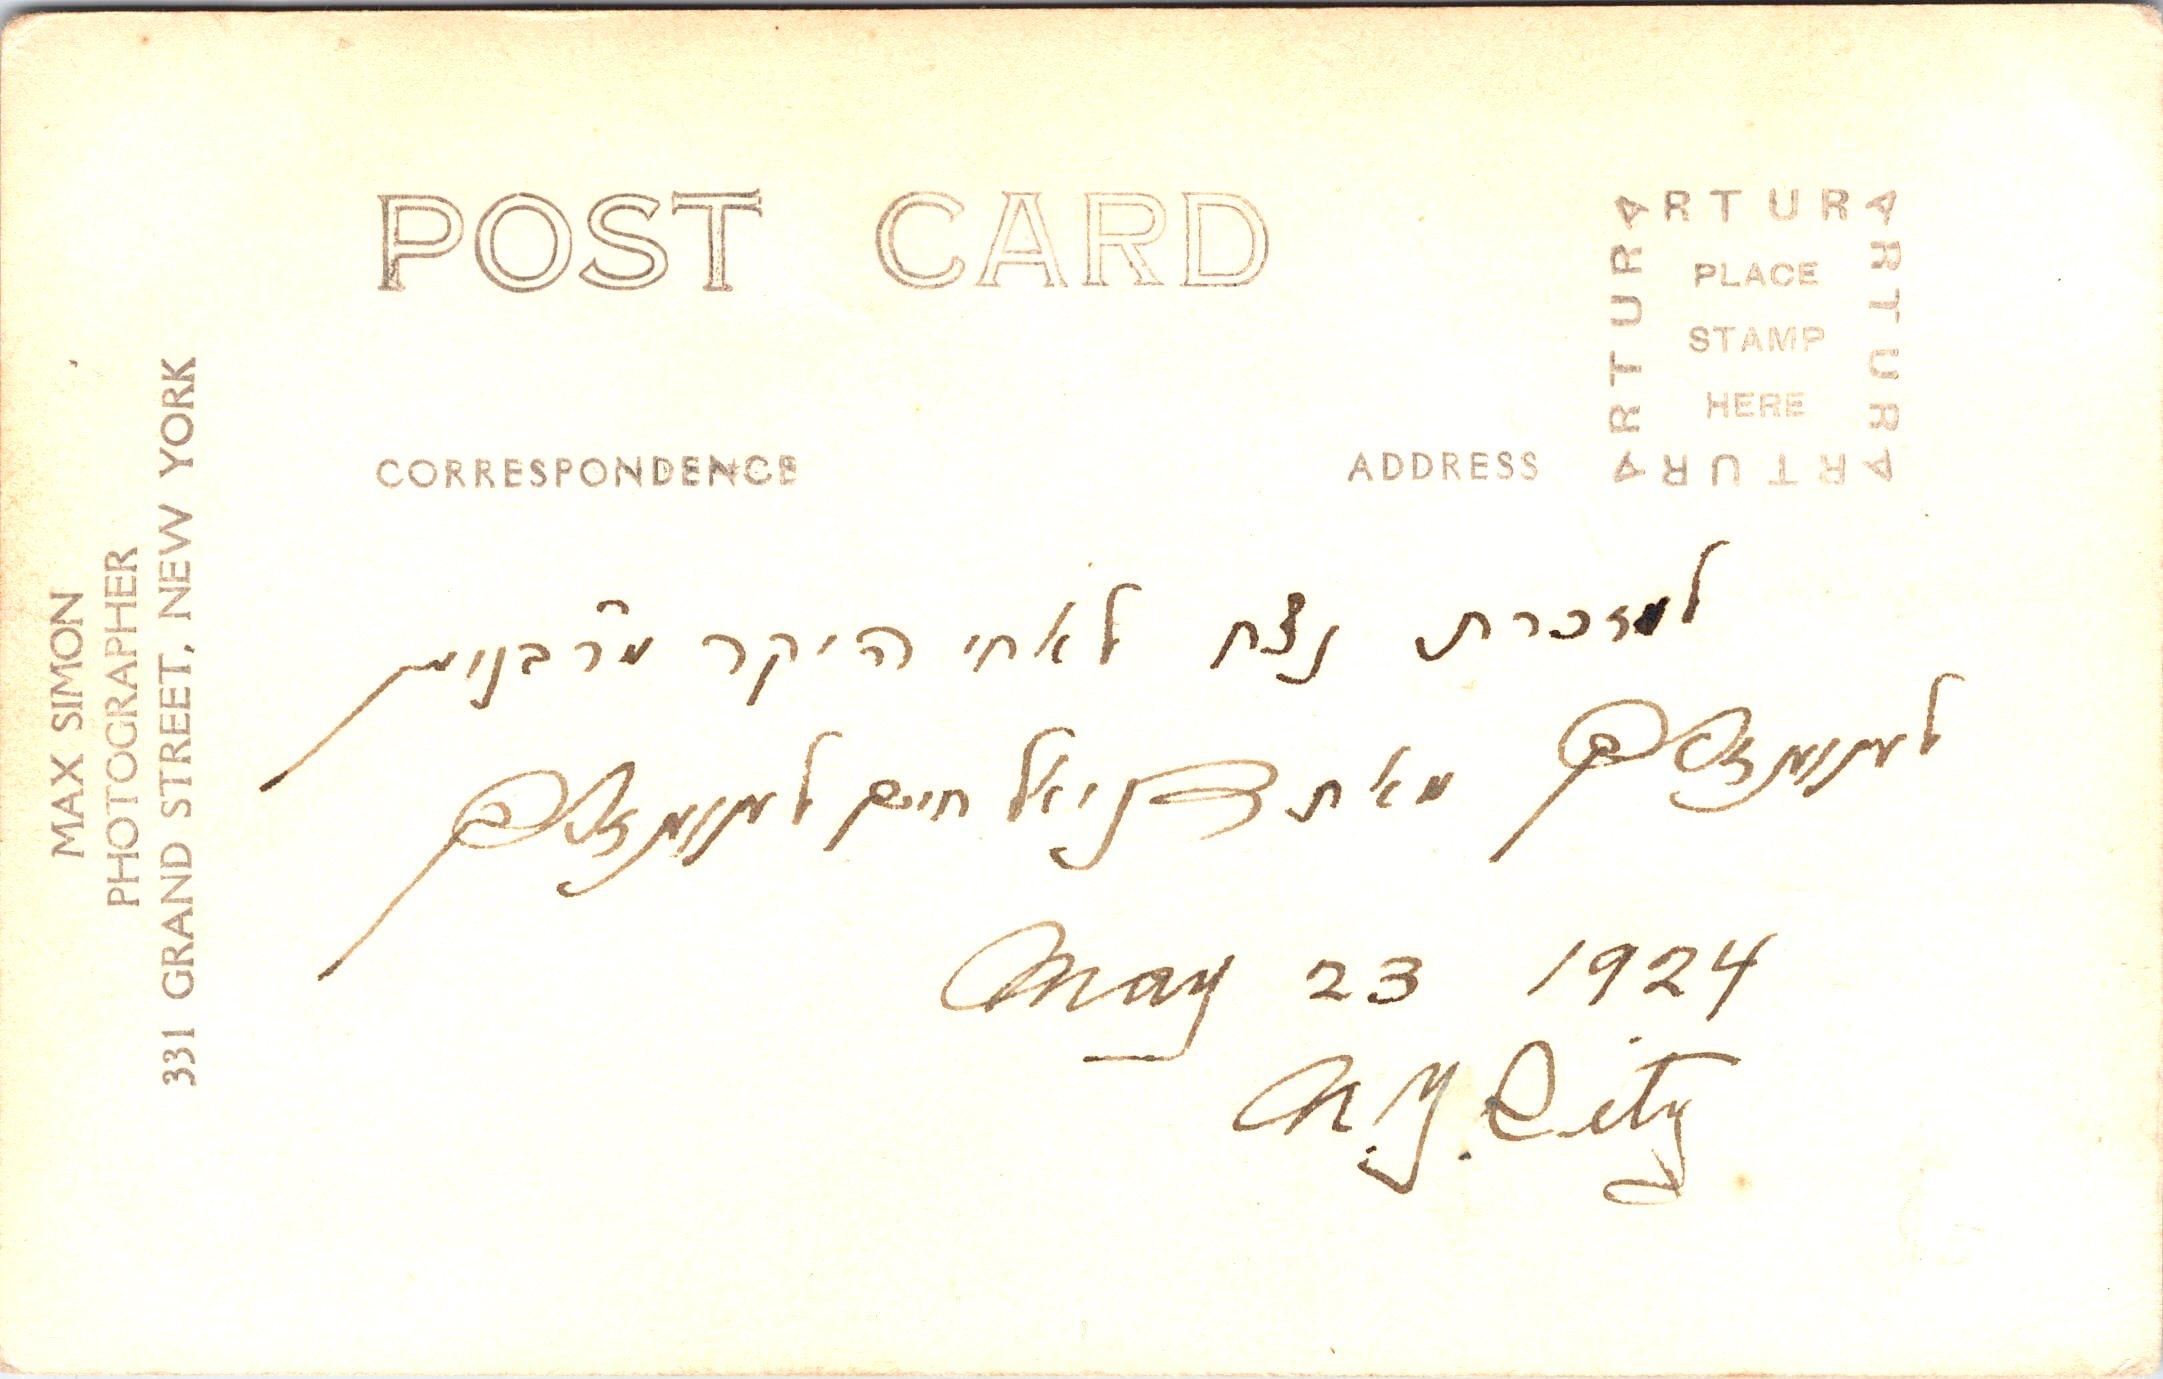 POST CARD
ARTURA
ARTURA
ARTURA
ARTURA
PLACE
STAMP
HERE
CORRESPONDENCE
ADDRESS
MAX SIMON
PHOTOGRAPHER
331 GRAND STREET, NEW YORK
למזכרת נצח לאחי היקר מ״ר בנימין
מאת דניאל חיים
May 23 1924
N.Y. City